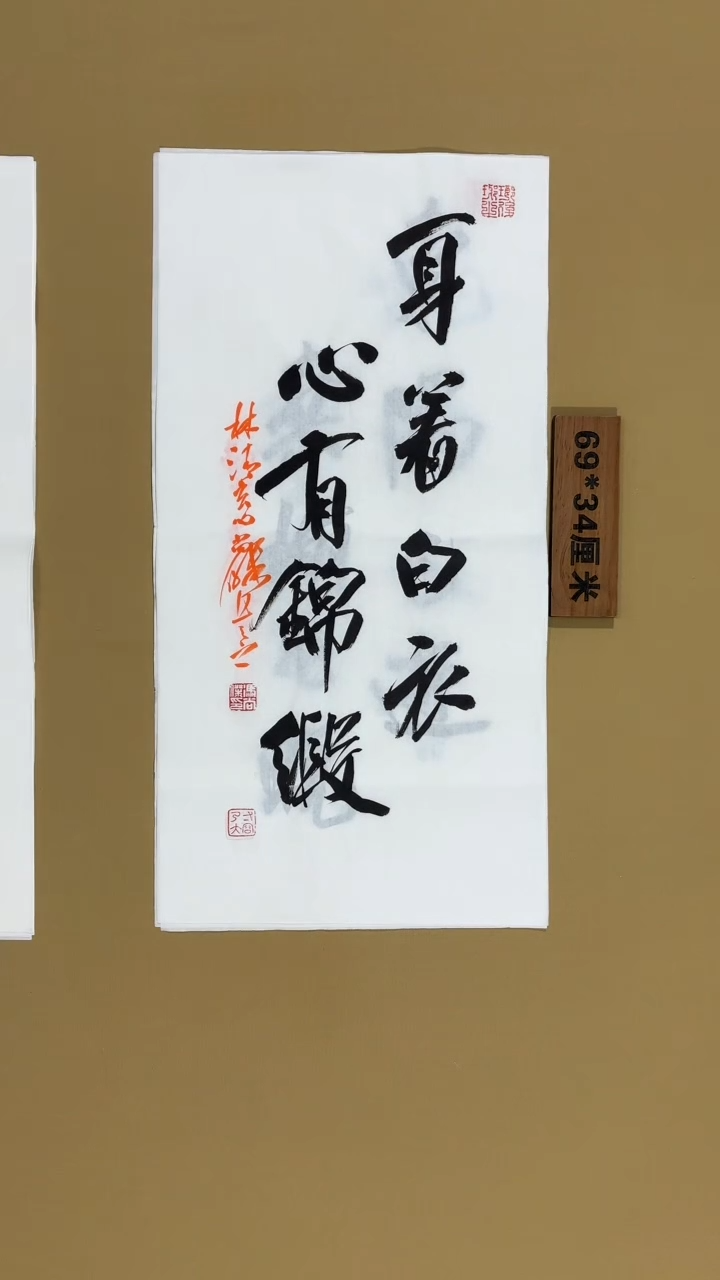 身着白衣
心有錦緞
林清玄句
69*34厘米